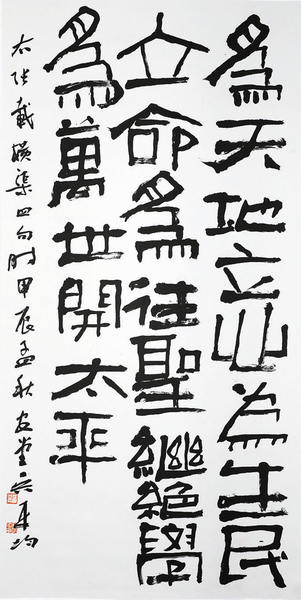 為天地立心為生民
立命為往聖繼絕學
為萬世開太平
右張載橫渠四句時甲辰孟秋